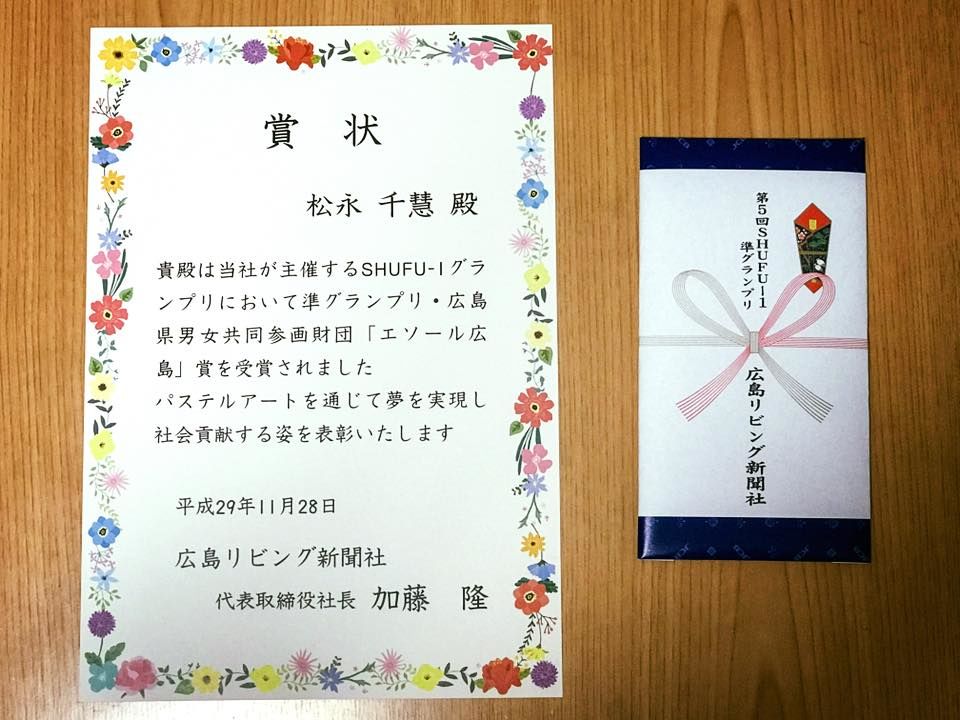 賞 状
松永 千慧 殿
貴殿は当社が主催するSHUFU-1グラ
ンプリにおいて準グランプリ・広島
県男女共同参画財団「エソール広
島」賞を受賞されました
パステルアートを通じて夢を実現し
社会貢献する姿を表彰いたします
平成29年11月28日
広島リビング新聞社
代表取締役社長 加藤 隆
第5回SHUFU-1
準グランプリ
広島リビング新聞社
JCB
JCB